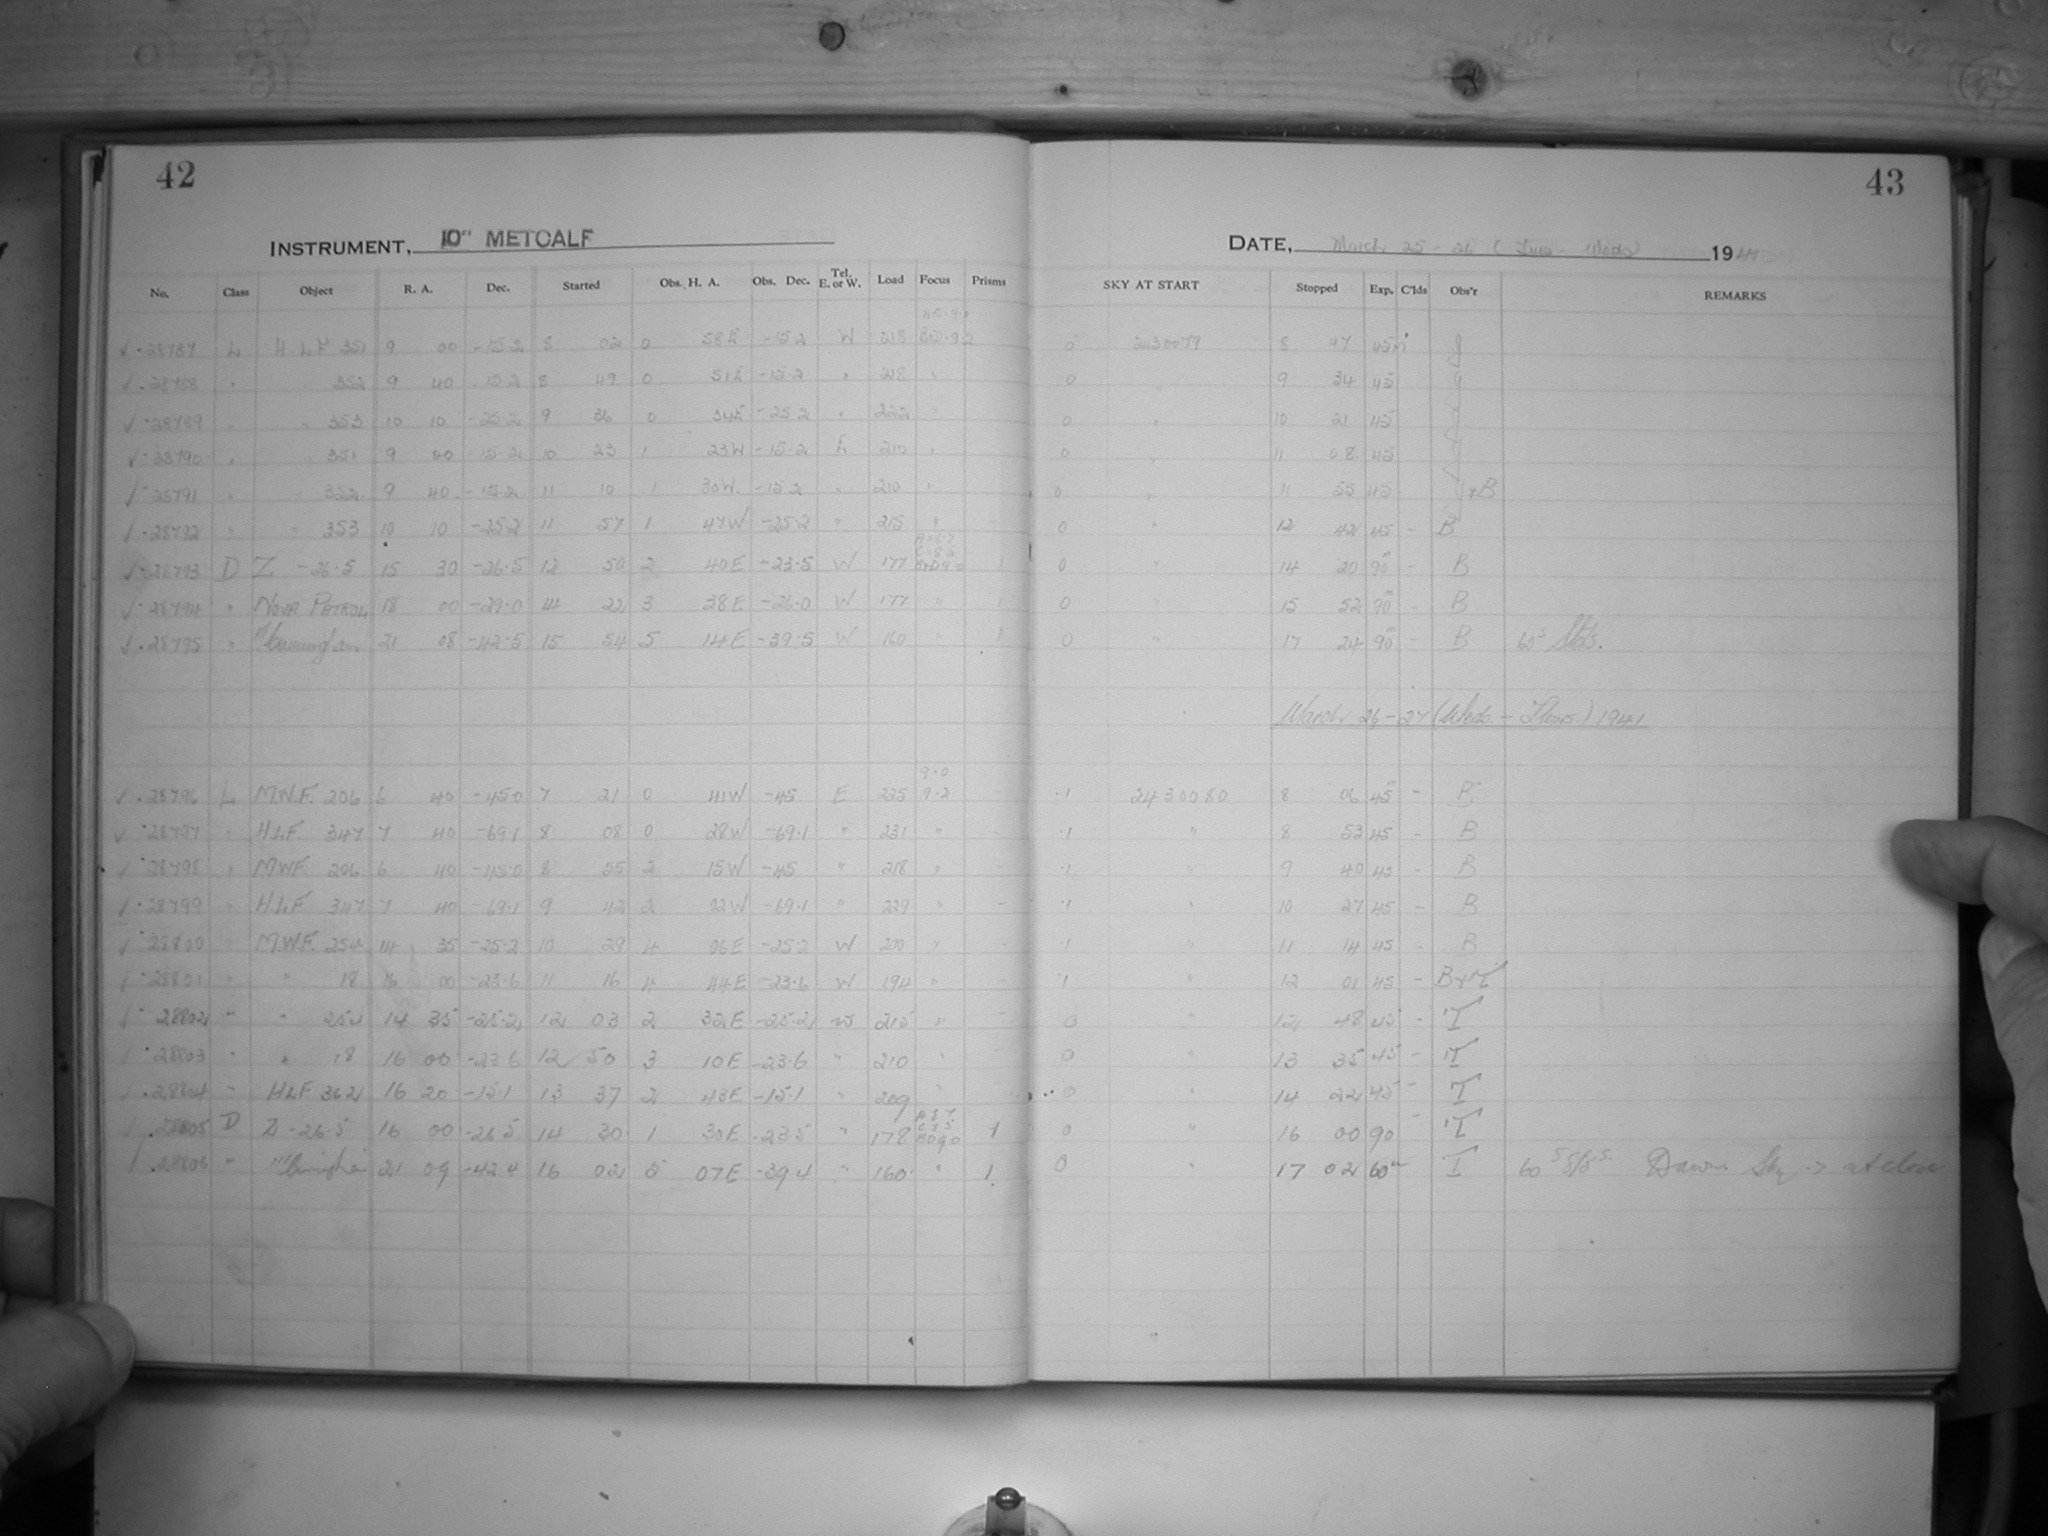 42
43
INSTRUMENT, 10" METCALF
DATE, March 25-26 (Tues - Weds) 1941
No. Class Object R. A. Dec. Started Obs. H. A. Obs. Dec. Tel. E. or W. Load Focus Prisms SKY AT START Stopped Exp. C'lds Obs'r REMARKS
28787 L H.L.F 351 9 00 -15.2 8 02 0 58E -15.2 W 218 0 2430079 8 47 45m J
28788 " " 352 9 40 -15.2 8 49 0 51E -15.2 " 218 " 0 " 9 34 45 J
28789 " " 353 10 10 -25.2 9 36 0 34E -25.2 " 222 " 0 " 10 21 45
28790 " " 351 9 00 -15.2 10 23 1 23W -15.2 E 210 " 0 " 11 08 45
28791 " " 352 9 40 -15.2 11 10 1 30W -15.2 " 210 " 0 " 11 55 45 J+B
28792 " " 353 10 10 -25.2 11 57 1 47W -25.2 " 215 " - 0 " 12 42 45 - B
28793 D Z -26.5 15 30 -26.5 12 50 2 40E -23.5 W 177 1 0 " 14 20 90 - B
28794 " NOVA PATROL 18 00 -29.0 14 22 3 38E -26.0 W 177 " 1 0 " 15 52 90 - B
28795 " Cunningham 21 08 -42.5 15 54 5 14E -39.5 W 160 " 1 0 " 17 24 90 - B 60s
March 26-27 (Weds. - Thurs.) 1941
9.0
28796 L M.W.F. 206 6 40 -45.0 7 21 0 41W -45 E 225 9.2 - .1 2430080 8 06 45 - B
28797 " H.L.F. 347 7 40 -69.1 8 08 0 28W -69.1 " 231 " - .1 " 8 53 45 - B
28798 " M.W.F. 206 6 40 -45.0 8 55 2 15W -45 " 218 " - .1 " 9 40 45 - B
28799 " H.L.F 347 7 40 -69.1 9 42 2 02W -69.1 " 229 " - .1 " 10 27 45 - B
28800 " M.W.F. 254 14 35 -25.2 10 29 4 06E -25.2 W 200 " - .1 " 11 14 45 - B
28801 " " 18 16 00 -23.6 11 16 4 44E -23.6 W 194 " - .1 " 12 01 45 - B+T
28802 " " 254 14 35 -25.2 12 03 2 32E -25.2 W 215 " 0 " 12 48 45 - T
28803 " " 18 16 00 -23.6 12 50 3 10E -23.6 " 210 " 0 " 13 35 45 - T
28804 " HLF 362 16 20 -15.1 13 37 2 43E -15.1 " 209 " 0 " 14 22 45 - T
28805 D Z -26.5 16 00 -26.5 14 30 1 30E -23.5 " 178 1 0 " 16 00 90 - T
28806 " 21 09 -42.4 16 02 5 07E -39.4 " 160 " 1 0 " 17 02 60m T 60s Dawn Sky at close